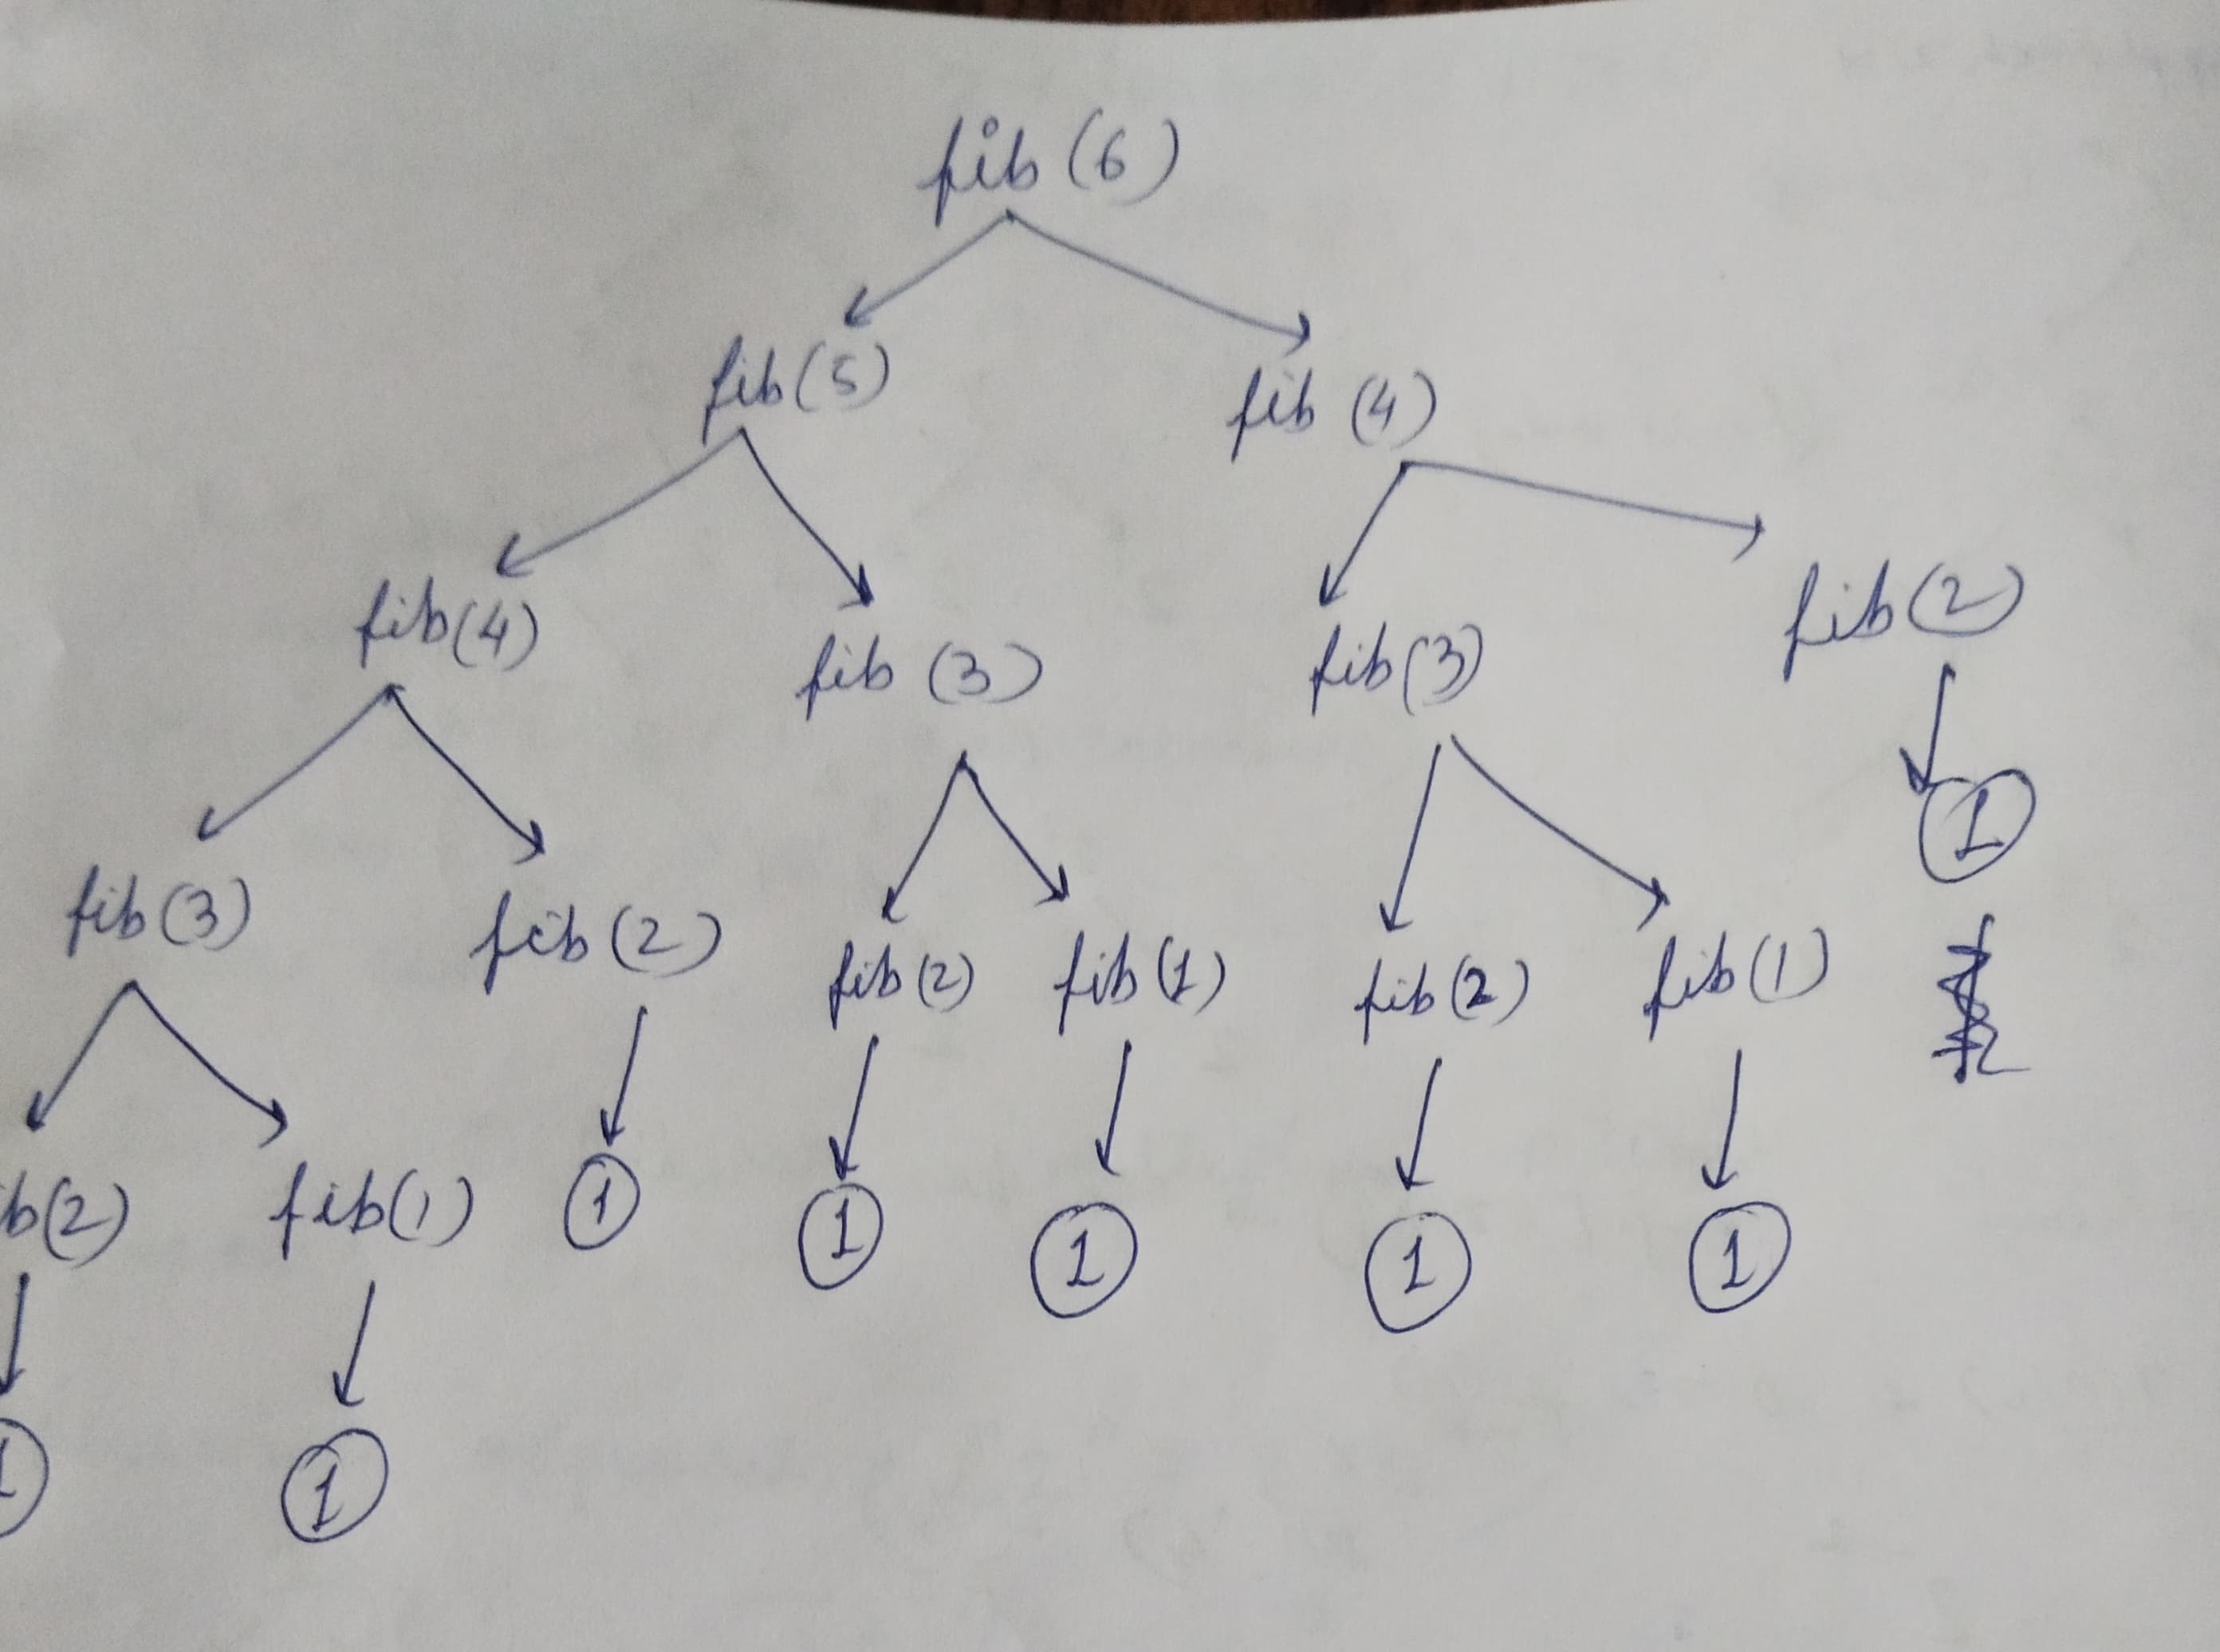 fib (6)
fib(5) fib (4)
fib(4) fib (3) fib(3) fib(2)
1
fib(3) fib(2) fib(2) fib(1) fib(2) fib(1)
b(2) fib(1) 1 1 1 1 1
1 1